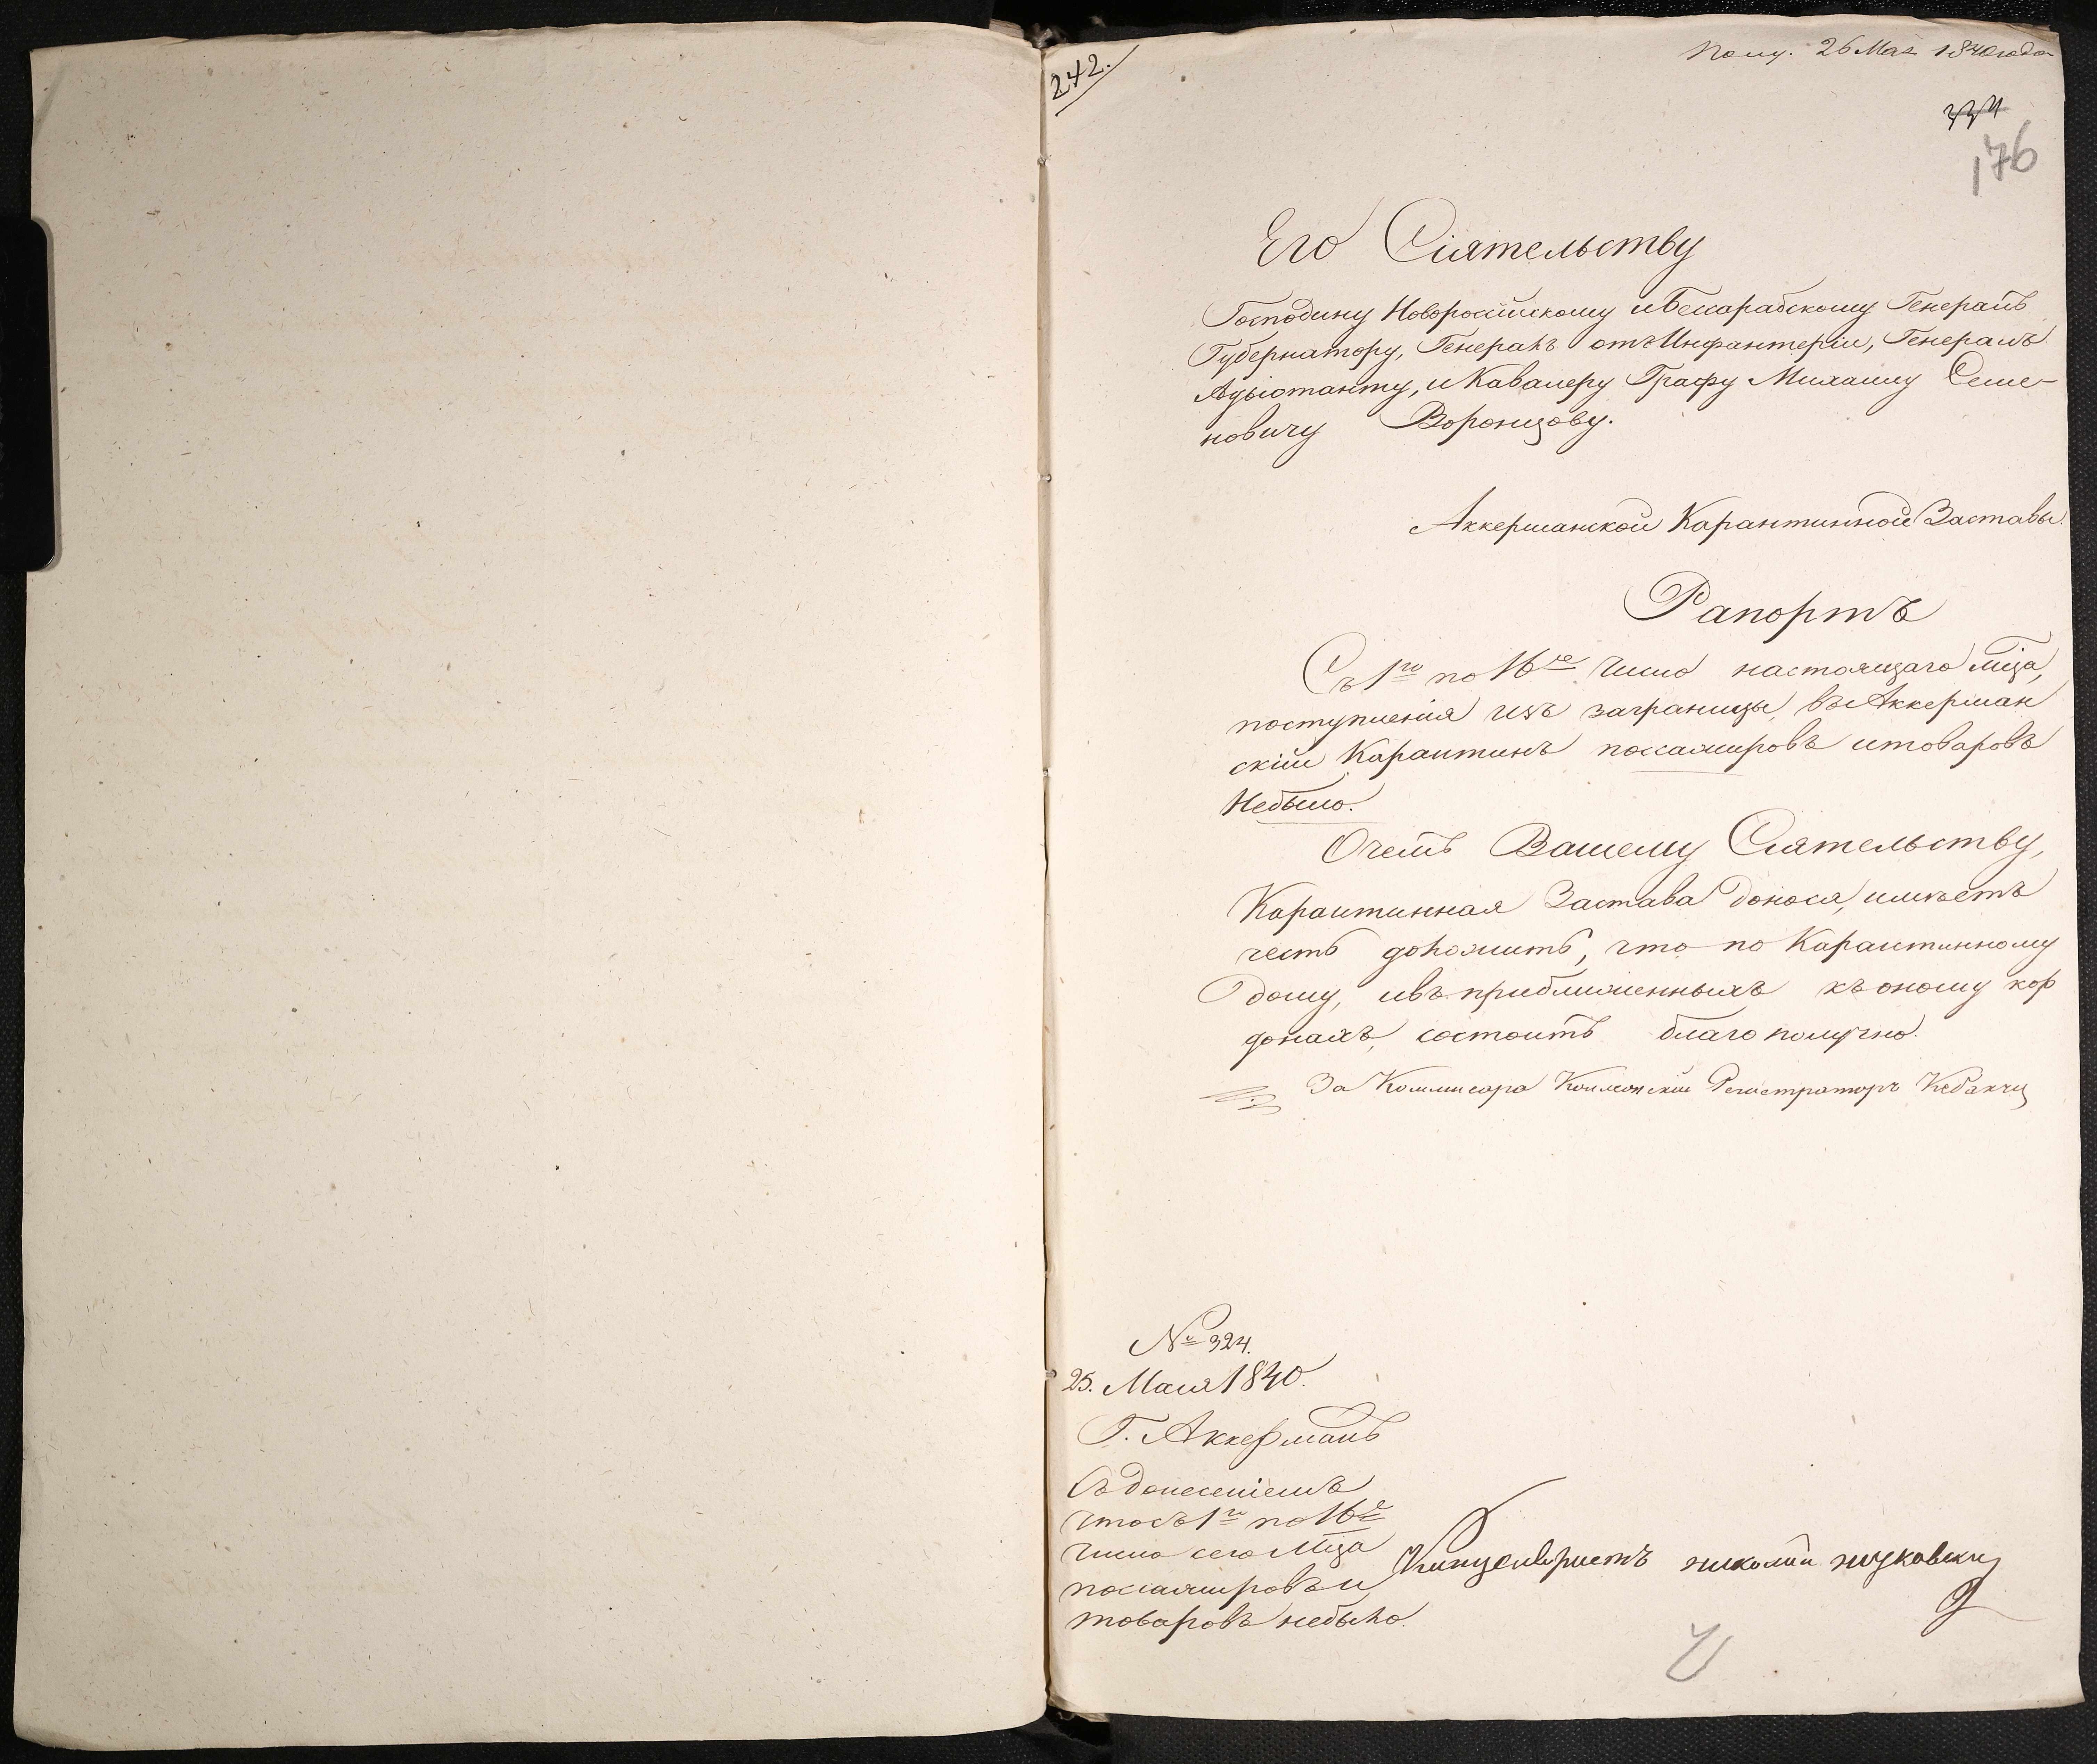 242.
Полу. 26 Мая 1840 года
334
176
Его Сіятельству
Господину Новороссійскому и Бессарабскому Генералъ
Губернатору, Генералъ отъ Инфантеріи, Генералъ
Адъютанту, и Кавалеру Графу Михаилу Семе-
новичу Воронцову.
Аккерманской Карантинной Заставы.
Рапортъ
Съ 1го по 16ое число настоящаго мца,
поступленія изъ заграницы, въ Аккерман
скій Карантинъ пассажировъ и товаровъ
Небыло.
О чемъ Вашему Сіятельству,
Карантинная Застава донося, имѣетъ
честь доложить, что по Карантинному
дому, и въ приближенныхъ къ оному кор
донахъ, состоитъ благополучно.
За Коммисара Коллежскій Регистраторъ Кебакчи
№ 324.
25. Маія 1840.
Г. Аккерманъ
Съ донесеніемъ
что съ 1го по 16е
число сего Мца
пассажировъ и
товаровъ небыло.
Канцеляристъ николай жуковский